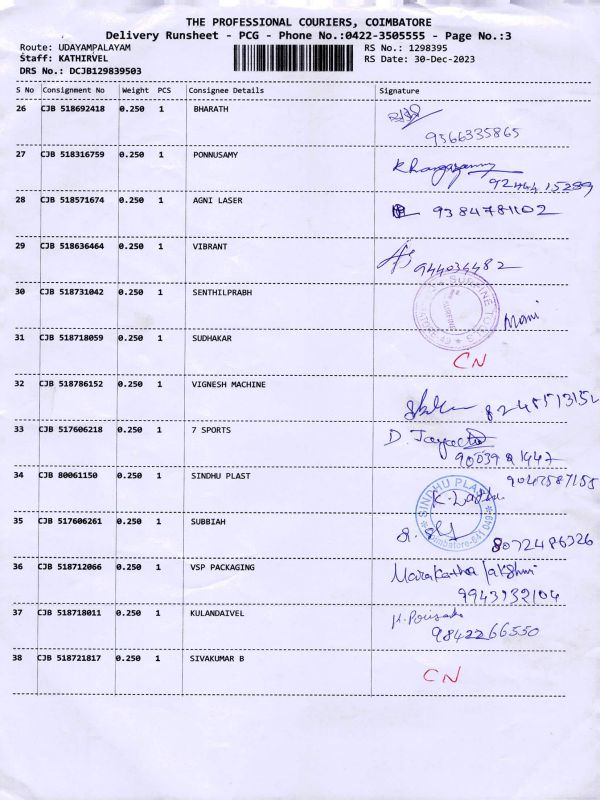 THE PROFESSIONAL COURIERS, COIMBATORE
Delivery Runsheet - PCG - Phone No.:0422-3505555 - Page No.:3
Route: UDAYAMPALAYAM RS No.: 1298395
Staff: KATHIRVEL RS Date: 30-Dec-2023
DRS No.: DCJB129839503
S No Consignment No Weight PCS Consignee Details Signature
26 CJB 518692418 0.250 1 BHARATH
9566335865
27 CJB 518316759 0.250 1 PONNUSAMY
28 CJB 518571674 0.250 1 AGNI LASER 9384781102
29 CJB 518636464 0.250 1 VIBRANT
944034482
30 CJB 518731042 0.250 1 SENTHILPRABH
Mani
31 CJB 518718059 0.250 1 SUDHAKAR
CN
32 CJB 518786152 0.250 1 VIGNESH MACHINE
8248513152
33 CJB 517606218 0.250 1 7 SPORTS
34 CJB 80061150 0.250 1 SINDHU PLAST 9047587158
SINDHU PLAST
Coimbatore-641 049
35 CJB 517606261 0.250 1 SUBBIAH
8072486326
36 CJB 518712066 0.250 1 VSP PACKAGING
9943932104
37 CJB 518718011 0.250 1 KULANDAIVEL
9842266550
38 CJB 518721817 0.250 1 SIVAKUMAR B
CN